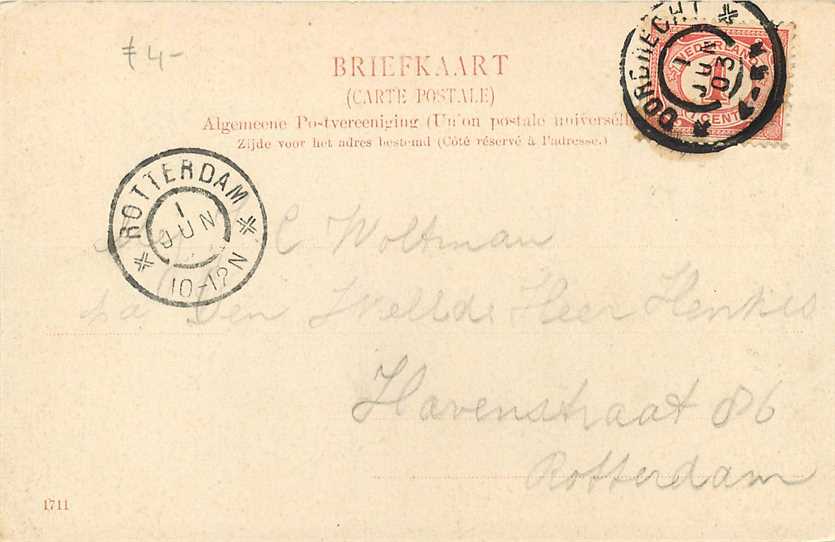 f 4-
BRIEFKAART
(CARTE POSTALE)
Algemeene Postvereeniging (Union postale universell
Zijde voor het adres bestemd (Côté réservé à l'adresse.)
DORDRECHT
1 JUN 03
NEDERLAND
1
CENT
ROTTERDAM
1 JUN
10-12N
C Woltman
pa Den Weled Heer Henkes
Havenstraat 86
Rotterdam
1711